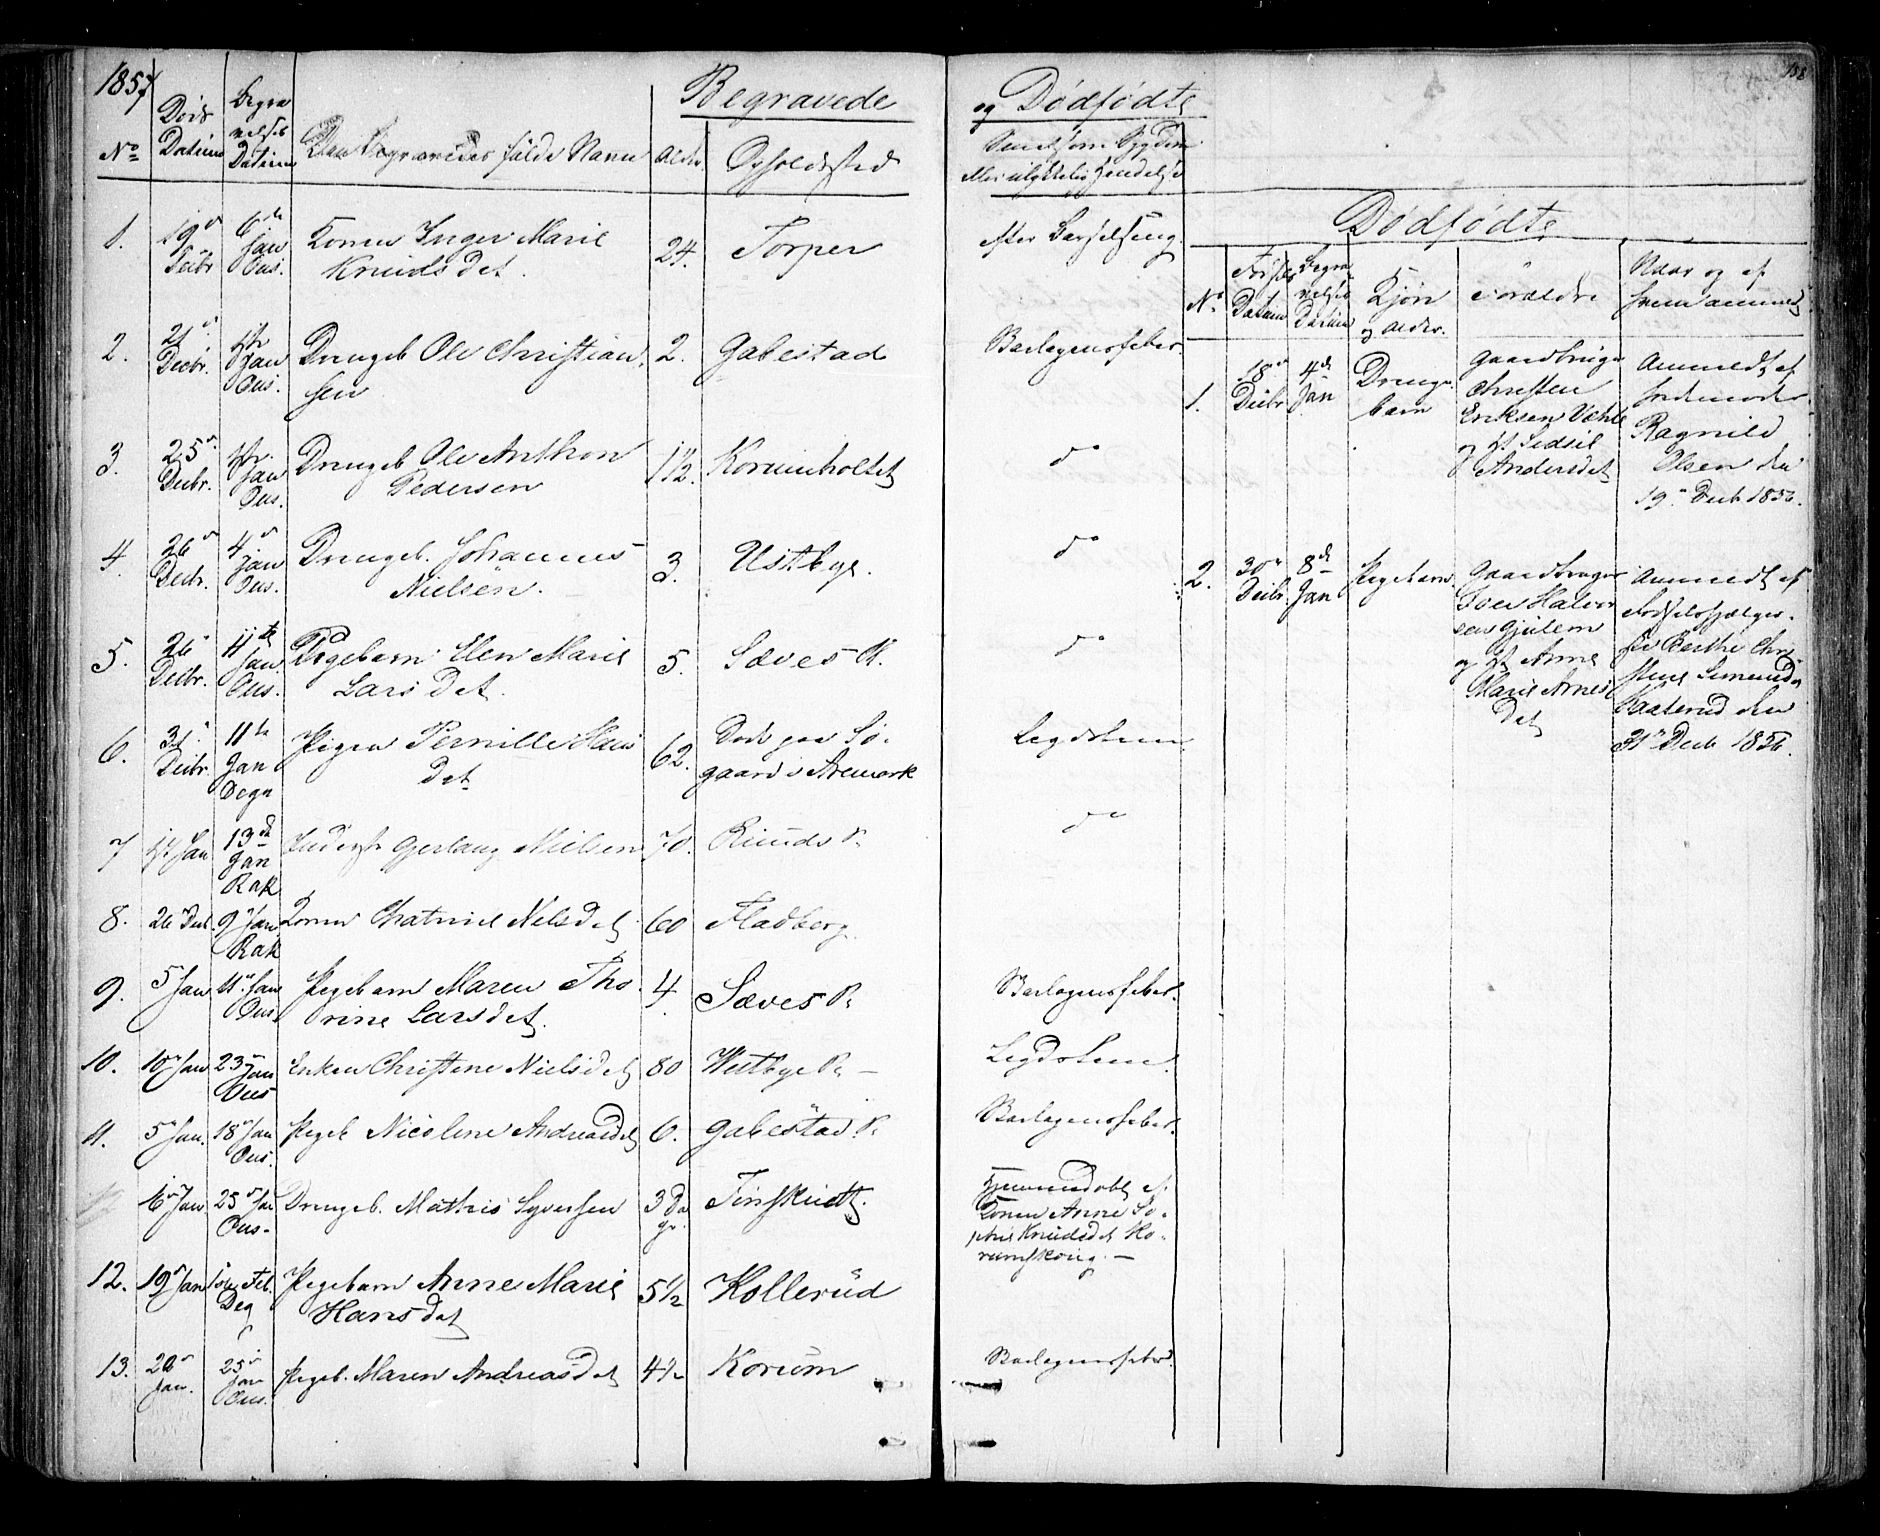 1857
Begravede
og Dødfødte
158
No
Døds Datum
Begravelses Datum
Den Begravedes fulde Navn
Alder
Opholdssted
1. 19 Decbr 6te Jan Øus. Konen Inger Marie Knudsdet. 24. Torper efter Barselseng
2. 21 Decbr. Jan Øus. Drengeb Ole Christiansen 2. Gabestad Barlagensfeber.
3. 25 Decbr. Jan Øus. Drengeb Ole Anthon Pedersen 1 1/2. Korumholtet do
4. 26 Decbr. 4 Jan Øus. Drengeb. Johannes Nielsen. 3. Ustbye. do
5. 26 Decbr. 11te Jan Øus. Pigebarn Elen Marie Larsdet. 5. Sæves R. do
6. 31 Decbr. 11te Jan Degn Pigen Pernille Hansdet 62. Død paa Søgaard i Aremark Lægdslem.
7 Jan 13de Jan Rak Inderst Gjerlaug Nielsen 70. do
8. 26 Decb. 9 Jan Rak Konen Chatrine Nielsdet. 60 Fladberg
9. 5 Jan 11 Jan Øus Pigebarn Maren Thorine Larsdet. 4. Sæves P. Barlagensfeber.
10. 10 Jan 23 Jan Øus Enken Christene Nielsdet 80 Lægdslem.
11. 5 Jan. 18 Jan Øus. Pigeb Nicoline Andreasdet 6. Gabestad P. Barlagensfeber.
6 Jan 25 Jan Øus. Drengeb. Mathis Syversen 3 Dage. Hjemmedøbt af Konen Anne Sophie Knudsdet Korumskoug. —
12. 19 Jan Feb. Deg Pigebarn Anne Marie Hansdet 5 1/2 Kollerud
13. 20 Jan. 25 Jan Øus. Pigeb. Maren Andreasdet 4 1/2 Korum Barlagensfeber.
Dødfødte
No
Fødsels Datum
Begravelses Datum
Kjøn og Alder.
Forældre
Naar og af hvem anmeldt
1. 18 Decbr 4de Jan Drengebarn Gaardbruger Christen Eriksen Væhle og H Sedsil Andersdet Anmeldt af Jordemoder Ragnild Olsen den 19 Decb 1856.
2. 30 Decbr 8de Jan Pigebarn Gaardbruger Iver Halvorsen Gjulem og H Anne Marie Arnesdet Anmeldt af Fødselshjælperske Berthe Christine Simensd Kaaterud den 31 Decb 1856.